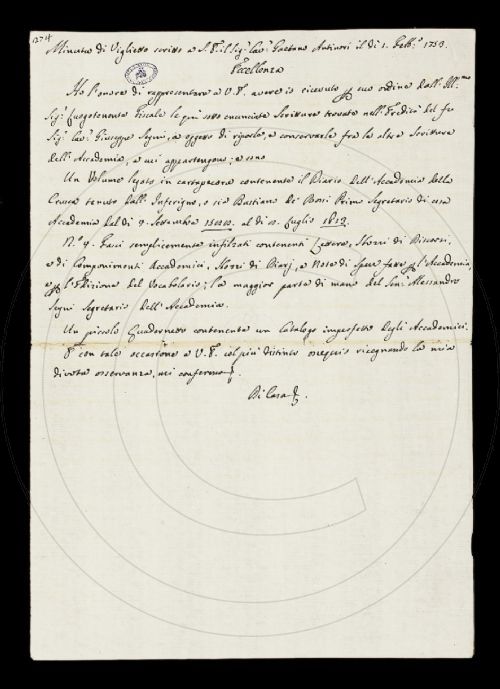 Minuta di Viglietto scritto a S. E. il Sig.r Cav.r Gaetano Antinori il dì 1. Febb.o 1753.
Eccellenza
Ho l'onore di rappresentare a V. E. avere io ricevuto per suo ordine dall'Ill.mo
Sig.r Luogotenente Fiscale le qui sotto enunciate Scritture trovate nell'Eredità del fu
Sig.r Cav.r Giuseppe Segni, a oggetto di riporle, e conservarle fra le altre Scritture
dell'Accademia, a cui appartengono; e sono
Un Volume legato in cartapecora contenente il Diario dell'Accademia della
Crusca tenuto dall'Inferigno, o sia Bastiano de' Rossi Primo Segretario di essa
Accademia dal dì Settembre al dì Luglio 1613.
N.o 9. Fasci semplicemente infilzati contenenti Lettere, Sforzi di Discorsi,
e di Componimenti Accademici, Sforzi di Diarj, e Note di spese fatte per l'Accademia,
e per l'Edizione del Vocabolario; la maggior parte di mano del Sen.r Alessandro
Segni Segretario dell'Accademia.
Un piccolo Quadernetto contenente un Catalogo imperfetto degli Accademici.
E con tale occasione a V. E. col più distinto ossequio rassegnando la mia
divota osservanza, mi confermo
Di Casa